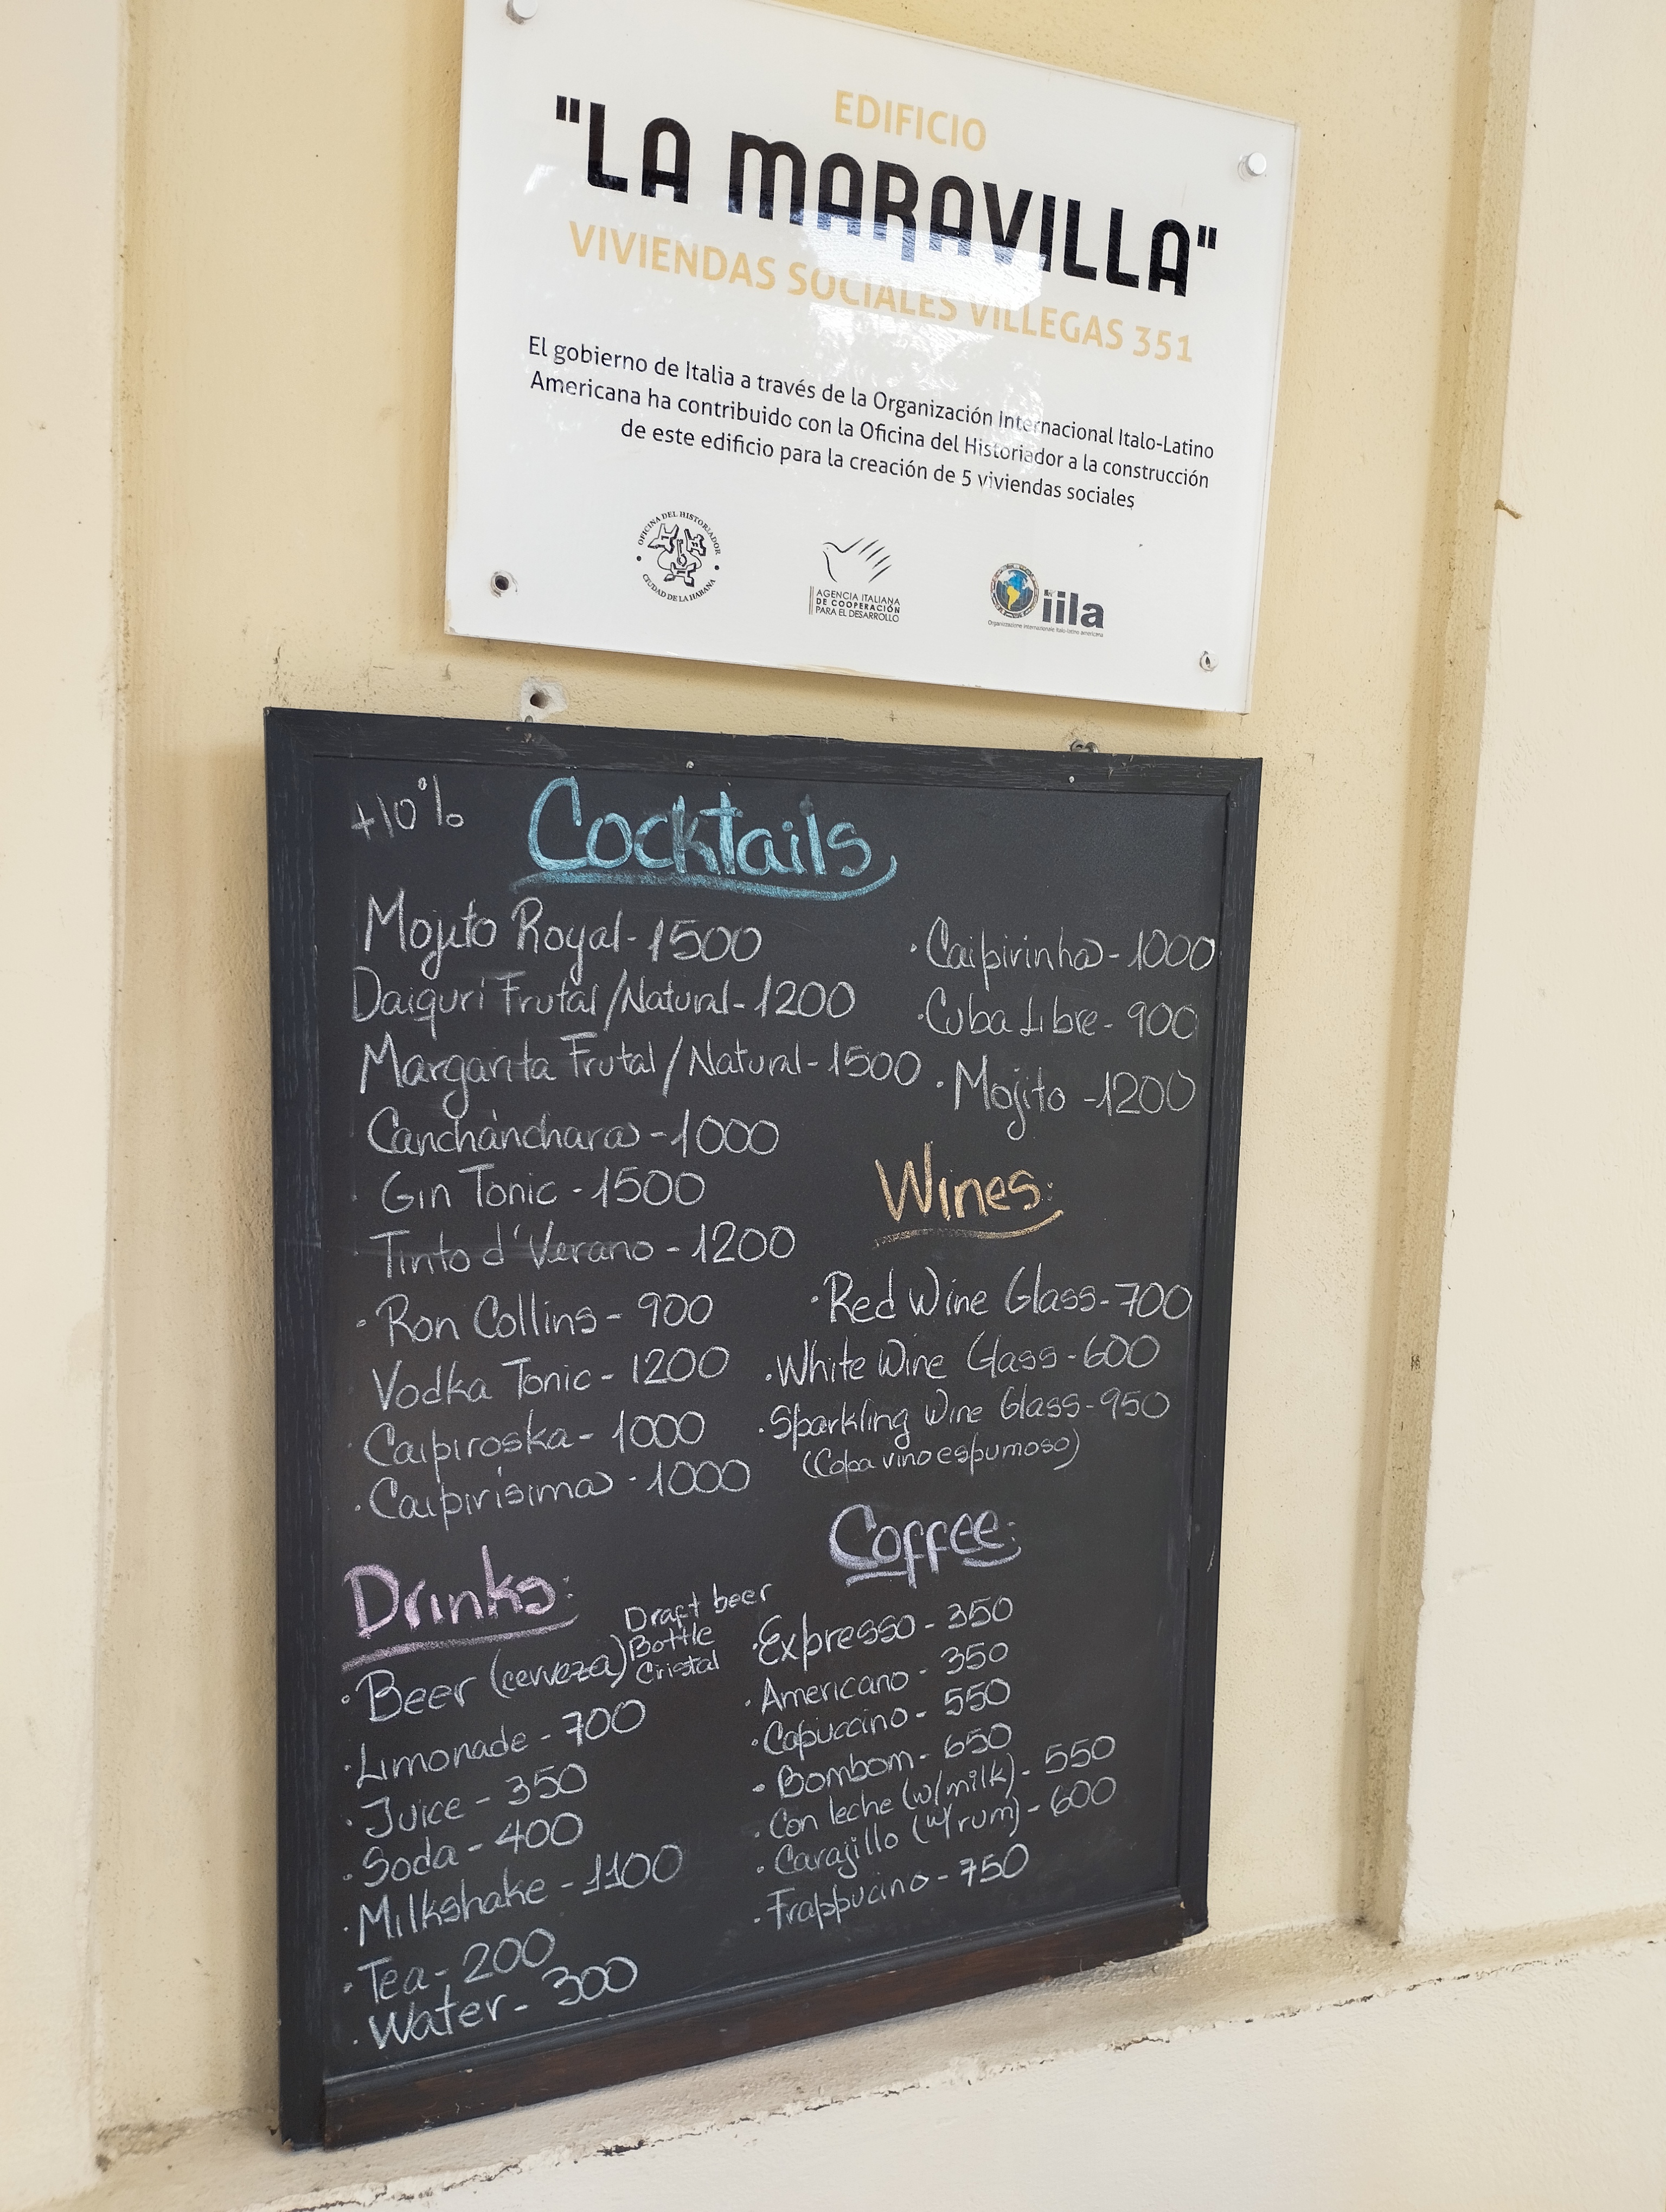 EDIFICIO
"LA MARAVILLA"
VIVIENDAS SOCIALES VILLEGAS 351
El gobierno de Italia a través de la Organización Internacional Italo-Latino
Americana ha contribuido con la Oficina del Historiador a la construcción
de este edificio para la creación de 5 viviendas sociales
OFICINA DEL HISTORIADOR
CIUDAD DE LA HABANA
AGENCIA ITALIANA
DE COOPERACIÓN
PARA EL DESARROLLO
iila
Organizzazione internazionale italo-latino americana
+10%
Cocktails
Mojito Royal - 1500
Daiquri Frutal/Natural - 1200
Margarita Frutal/Natural - 1500
Canchánchara - 1000
Gin Tonic - 1500
Tinto d'Verano - 1200
· Ron Collins - 900
Vodka Tonic - 1200
· Caipiroska - 1000
· Caipirísima - 1000
· Caipirinha - 1000
· Cuba Libre - 900
· Mojito - 1200
Wines:
· Red Wine Glass - 700
· White Wine Glass - 600
· Sparkling Wine Glass - 950
(Copa vino espumoso)
Drinks:
· Beer (cerveza) Draft beer
Bottle
Cristal
· Limonade - 700
· Juice - 350
· Soda - 400
· Milkshake - 1100
· Tea - 200
· Water - 300
Coffee:
· Expresso - 350
· Americano - 350
· Capuccino - 550
· Bombom - 650
· Con leche (w/milk) - 550
· Carajillo (w/rum) - 600
· Frappucino - 750